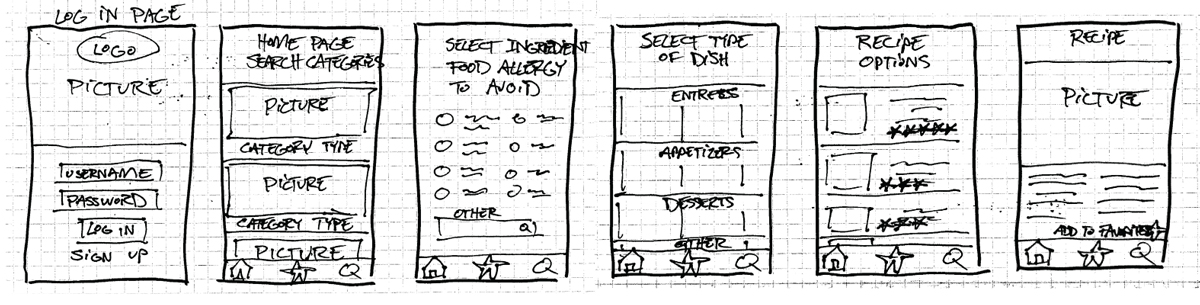 LOG IN PAGE
LOGO
PICTURE
USERNAME
PASSWORD
LOG IN
SIGN UP
HOME PAGE
SEARCH CATEGORIES
PICTURE
CATEGORY TYPE
PICTURE
CATEGORY TYPE
PICTURE
SELECT INGREDIENT
FOOD ALLERGY
TO AVOID
OTHER
SELECT TYPE
OF DISH
ENTREES
APPETIZERS
DESSERTS
OTHER
RECIPE
OPTIONS
RECIPE
PICTURE
ADD TO FAVORITES